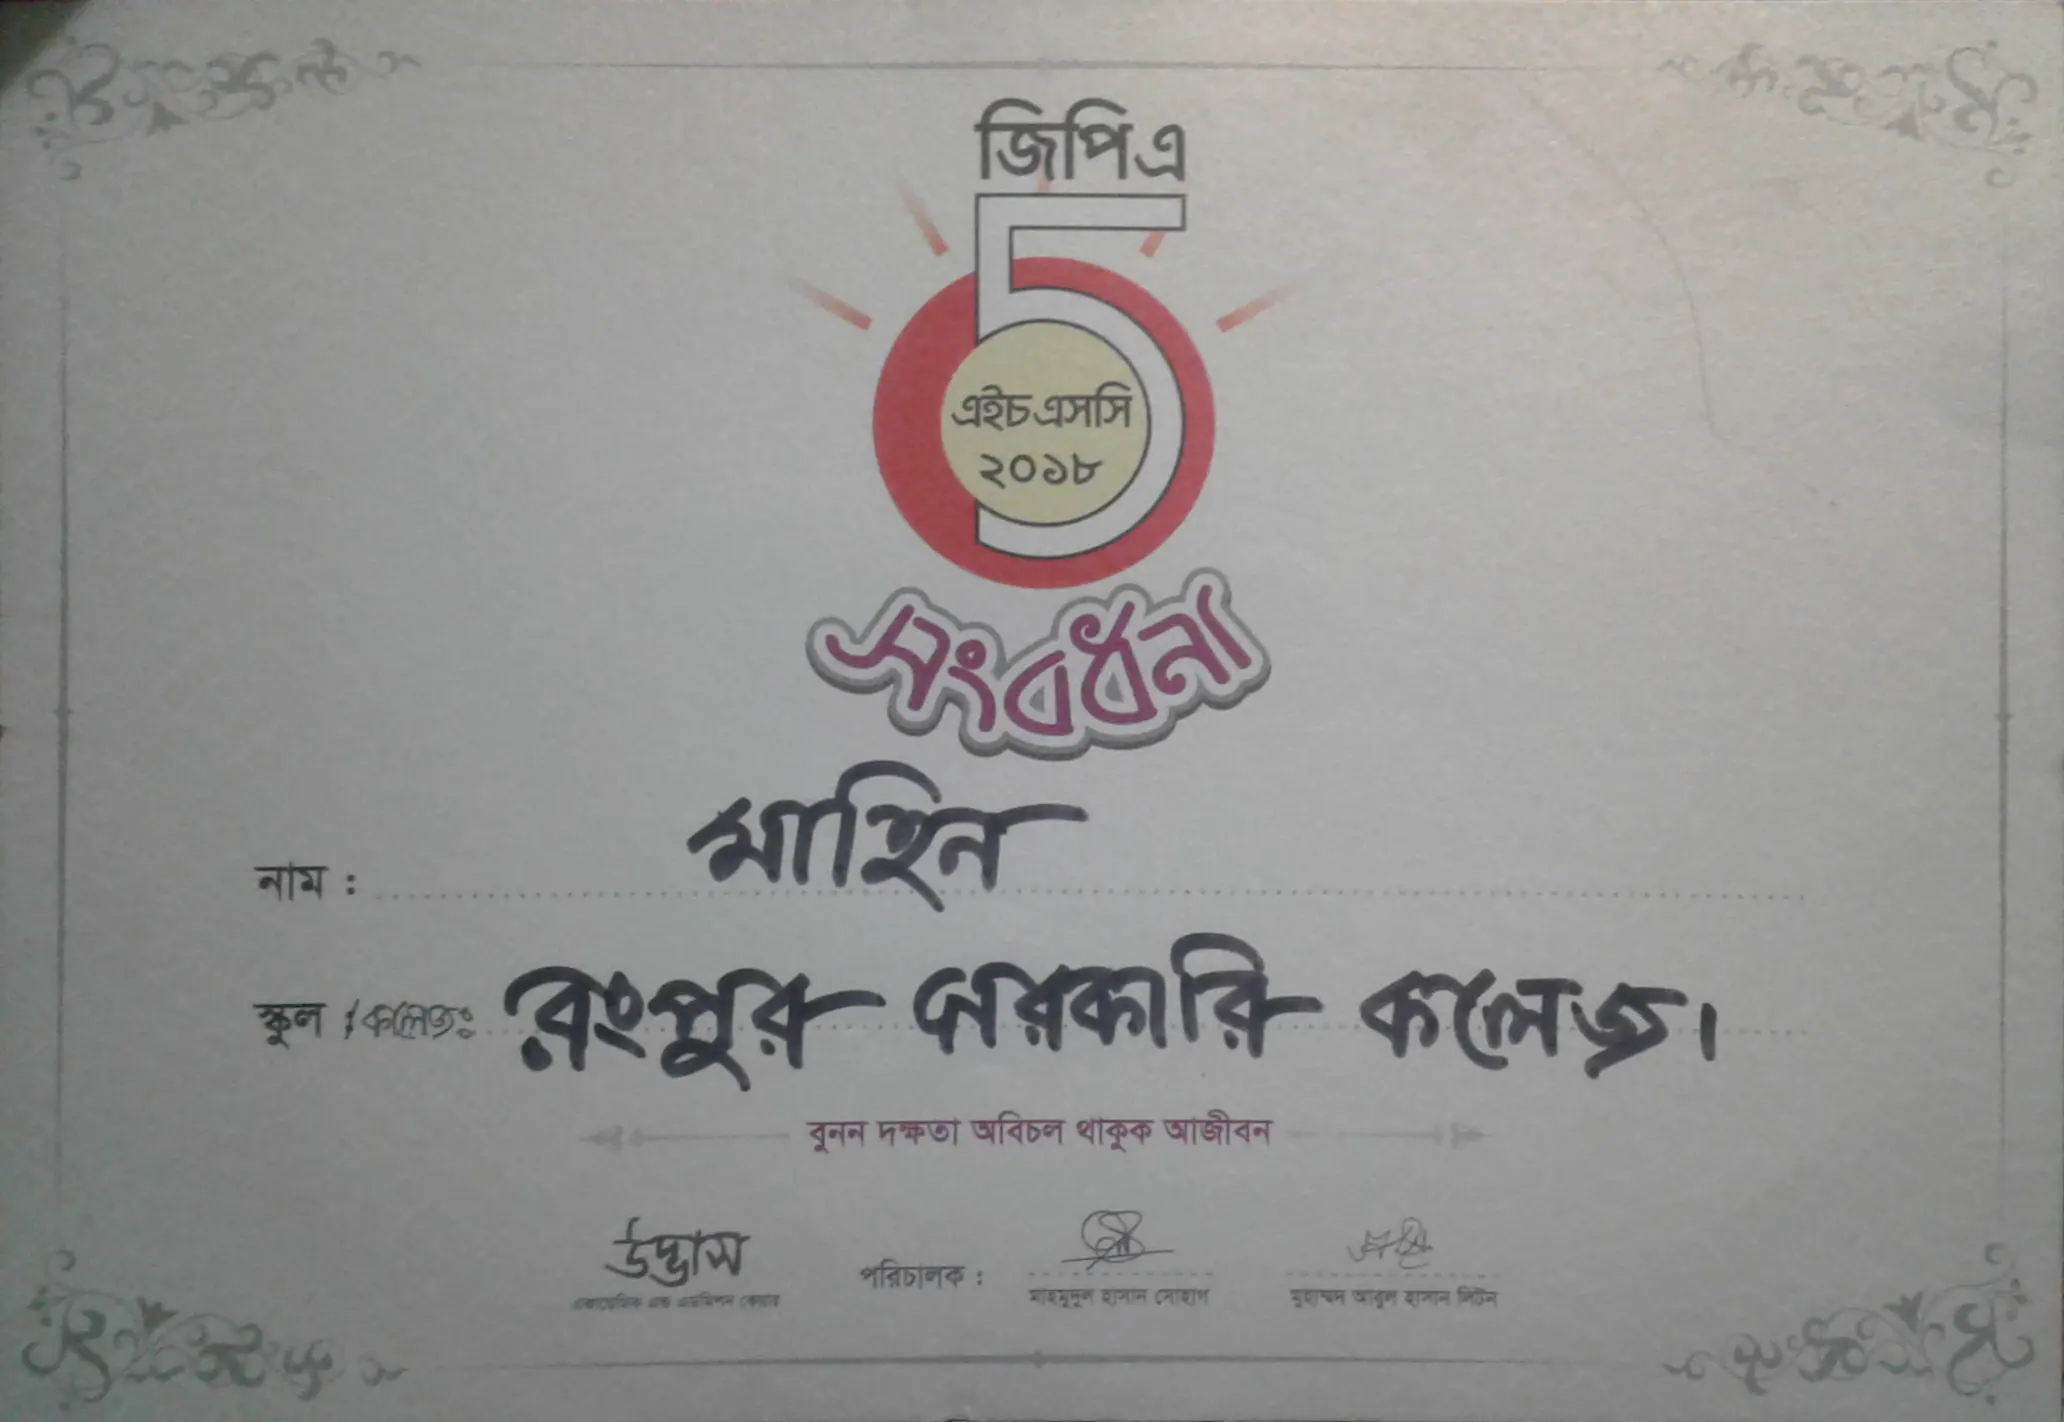 জিপিএ
5
এইচএসসি
২০১৮
সংবর্ধনা
নাম : মাহিন
স্কুল / কলেজ: রংপুর সরকারি কলেজ।
বুনন দক্ষতা অবিচল থাকুক আজীবন
উদ্ভাস
একাডেমিক এন্ড এডমিশন কেয়ার
পরিচালক :
মাহমুদুল হাসান সোহাগ
মুহাম্মদ আবুল হাসান লিটন